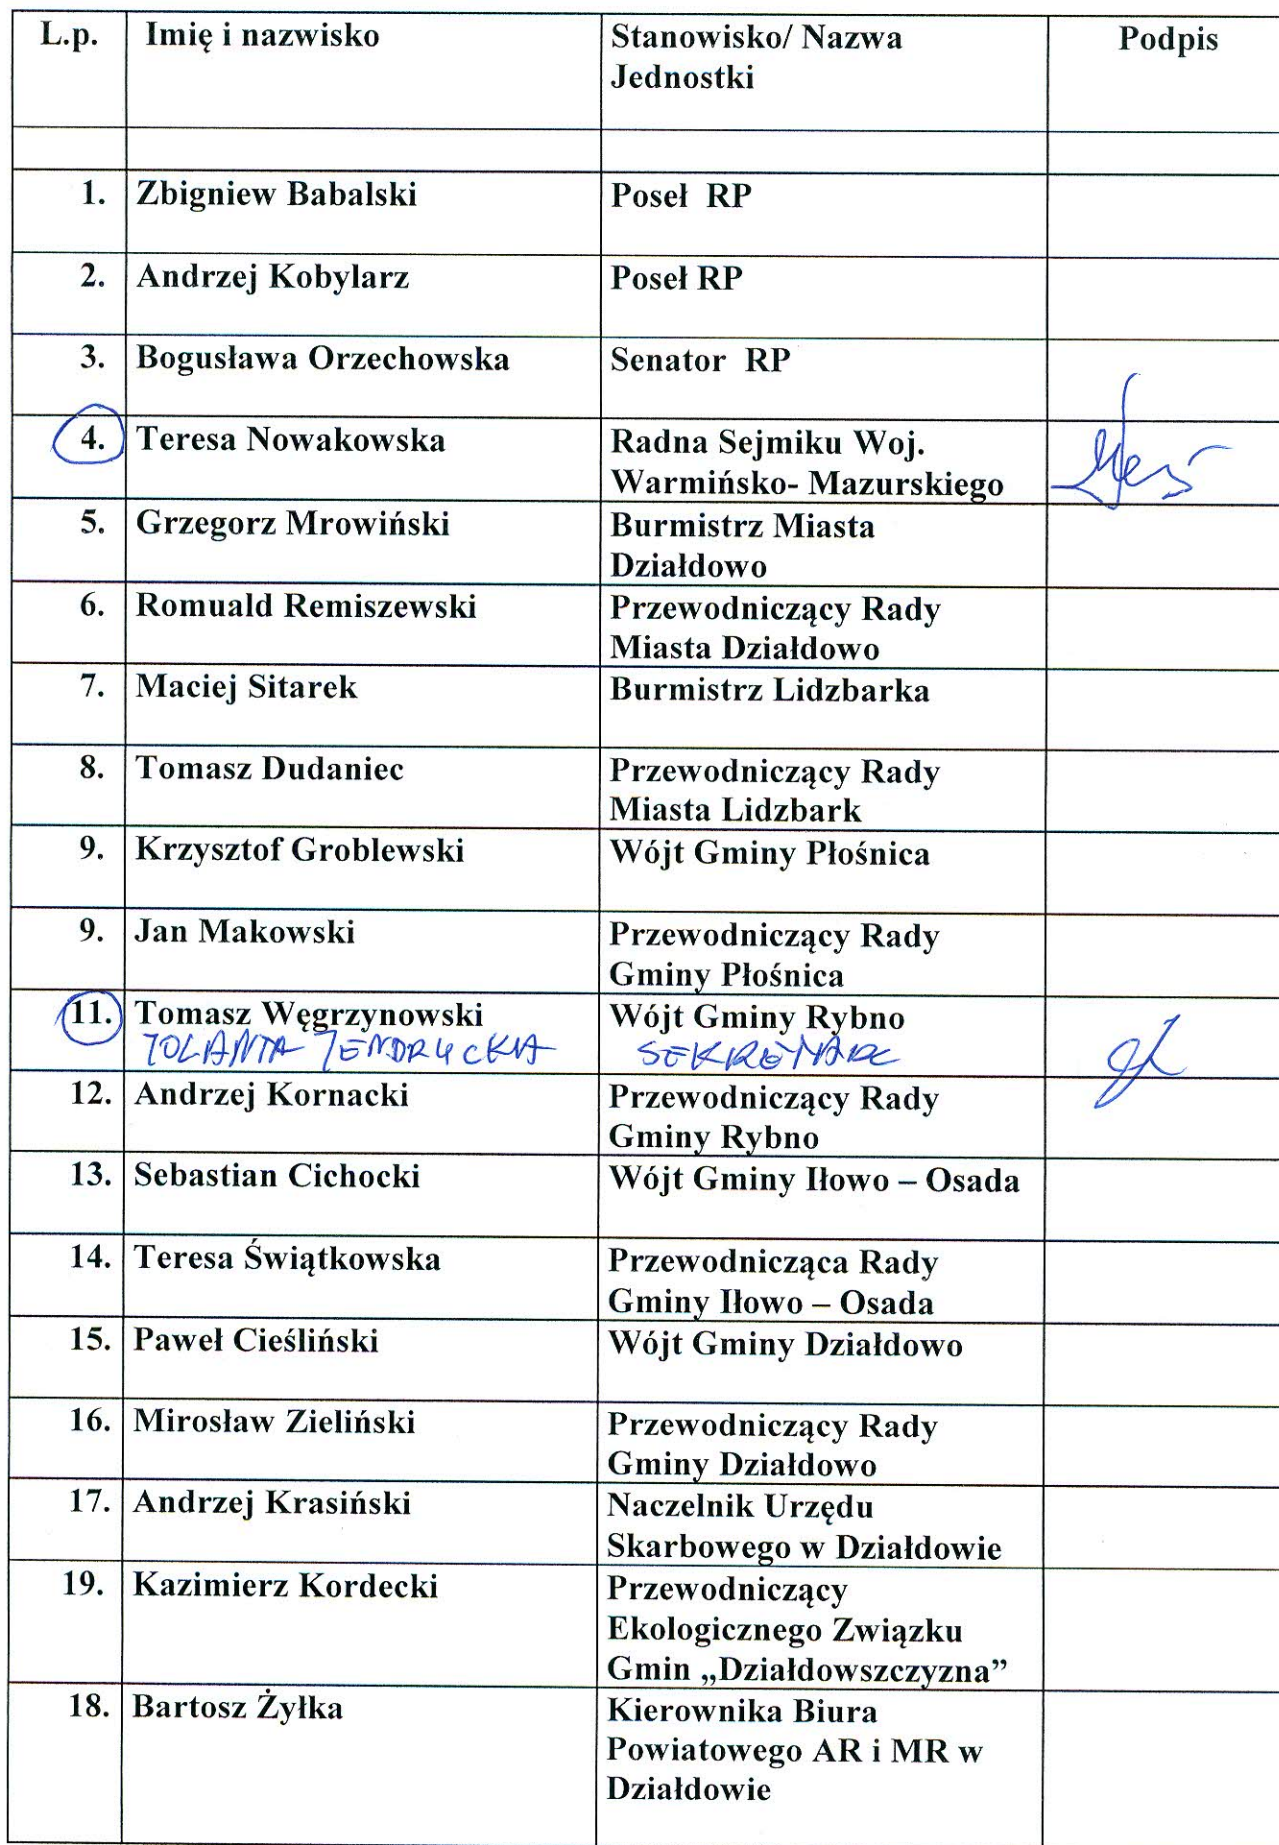 L.p. Imię i nazwisko Stanowisko/ Nazwa Podpis
Jednostki
1. Zbigniew Babalski Poseł RP
2. Andrzej Kobylarz Poseł RP
3. Bogusława Orzechowska Senator RP
4. Teresa Nowakowska Radna Sejmiku Woj.
Warmińsko- Mazurskiego
5. Grzegorz Mrowiński Burmistrz Miasta
Działdowo
6. Romuald Remiszewski Przewodniczący Rady
Miasta Działdowo
7. Maciej Sitarek Burmistrz Lidzbarka
8. Tomasz Dudaniec Przewodniczący Rady
Miasta Lidzbark
9. Krzysztof Groblewski Wójt Gminy Płośnica
9. Jan Makowski Przewodniczący Rady
Gminy Płośnica
11. Tomasz Węgrzynowski Wójt Gminy Rybno
JOLANTA JENDRYCKA SEKRETARZ
12. Andrzej Kornacki Przewodniczący Rady
Gminy Rybno
13. Sebastian Cichocki Wójt Gminy Iłowo – Osada
14. Teresa Świątkowska Przewodnicząca Rady
Gminy Iłowo – Osada
15. Paweł Cieśliński Wójt Gminy Działdowo
16. Mirosław Zieliński Przewodniczący Rady
Gminy Działdowo
17. Andrzej Krasiński Naczelnik Urzędu
Skarbowego w Działdowie
19. Kazimierz Kordecki Przewodniczący
Ekologicznego Związku
Gmin „Działdowszczyzna”
18. Bartosz Żyłka Kierownika Biura
Powiatowego AR i MR w
Działdowie